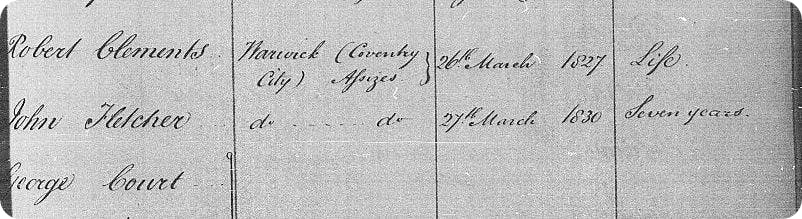 Robert Clements Warwick (Coventry City) Assizes } 26th March 1827 Life.
John Fletcher do do 27th March 1830 Seven years.
George Court